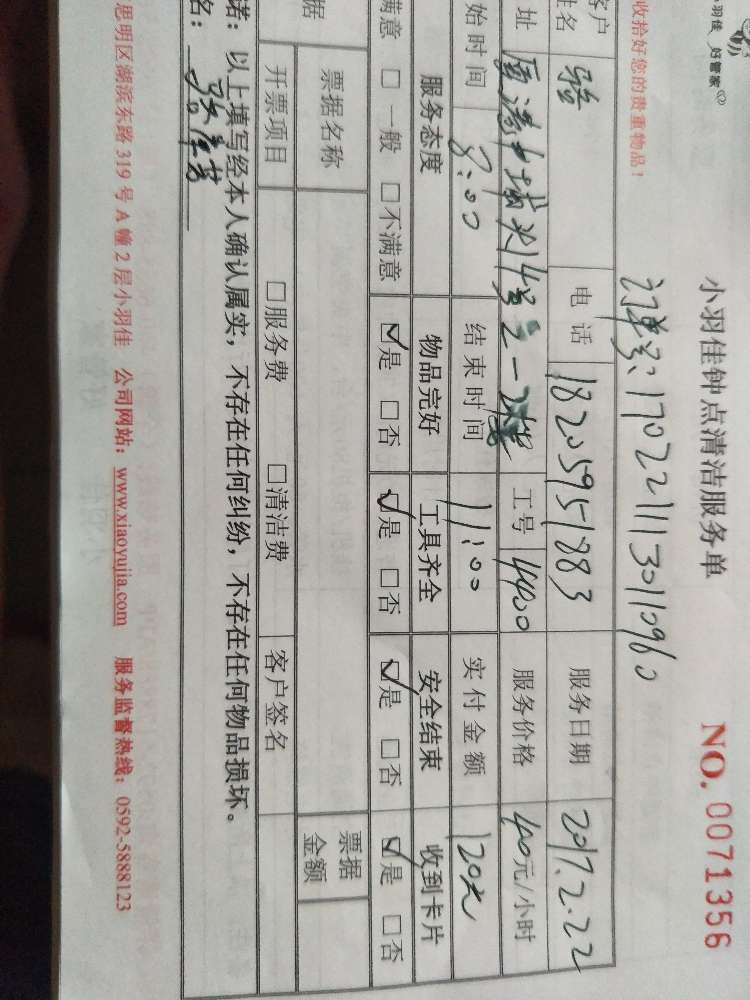 小羽佳 好管家
小羽佳钟点清洁服务单
NO. 0071356
收拾好您的贵重物品!
订单号: 1702211130110960
客户姓名 骆 电话 18205951883 服务日期 2017.2.22
址 14号之一 工号 4400 服务价格 40元/小时
始时间 8:00 结束时间 11:00 实付金额 120元
服务态度 物品完好 工具齐全 安全结束 收到卡片
满意 □ 一般 □ 不满意 ☑是 □否 ☑是 □否 ☑是 □否 ☑是 □否
据 票据名称 票据金额
开票项目 □服务费 □清洁费 客户签名
诺: 以上填写经本人确认属实, 不存在任何纠纷, 不存在任何物品损坏。
名:
思明区湖滨东路 319 号 A 幢 2 层小羽佳 公司网站: www.xiaoyujia.com 服务监督热线: 0592-5888123